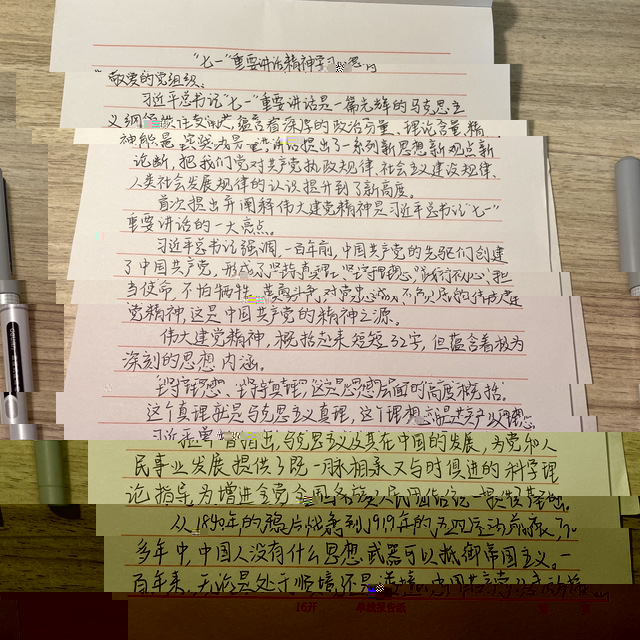 "七一"重要讲话精神学习
敬爱的党组织、
习近平总书记"七一"重要讲话是一篇光辉的马克思主
义纲领性 蕴含着深厚的政治分量、理论含量、精
神能量 讲话提出了一系列新思想新观点新
论断，把我们党对共产党执政规律、社会主义建设规律、
人类社会发展规律的认识提升到了新高度。
首次提出并阐释伟大建党精神是习近平总书记"七一"
重要讲话的一大亮点。
习近平总书记强调，一百年前，中国共产党的先驱们创建
了中国共产党，形成了坚持真理、坚守理想、践行初心、担
当使命，不怕牺牲、英勇斗争，对党忠诚、不负人民的伟大建
党精神，这是中国共产党的精神之源。
伟大建党精神，概括起来短短32字，但蕴含着极为
深刻的思想内涵。
坚守理想、坚持真理，这是思想层面的高度概括。
这个真理就是马克思主义真理，这个理想 是共产主义理想。
习近平总 指出，马克思主义及其在中国的发展，为党和人
民事业发展提供了既一脉相承又与时俱进的科学理
论指导，为增进全党全国各族人民团结统一提供了
从1840年的鸦片战争到1919年的五四运动前夜，70
多年中，中国人没有什么思想武器可以抵御帝国主义。一
百年来，无论是处于顺境还是逆境，中国共产党
16开 单线报告纸